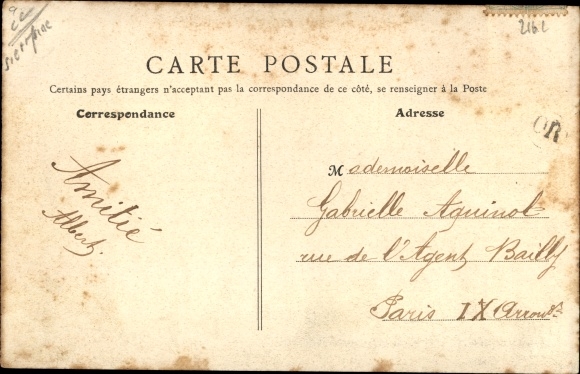 2e
CARTE POSTALE
Certains pays étrangers n'acceptant pas la correspondance de ce côté, se renseigner à la Poste
Correspondance
Amitié
Albert.
Adresse
OR
Mademoiselle
Gabrielle Aquinot
rue de l'Agent Bailly
Paris IX Arrondt